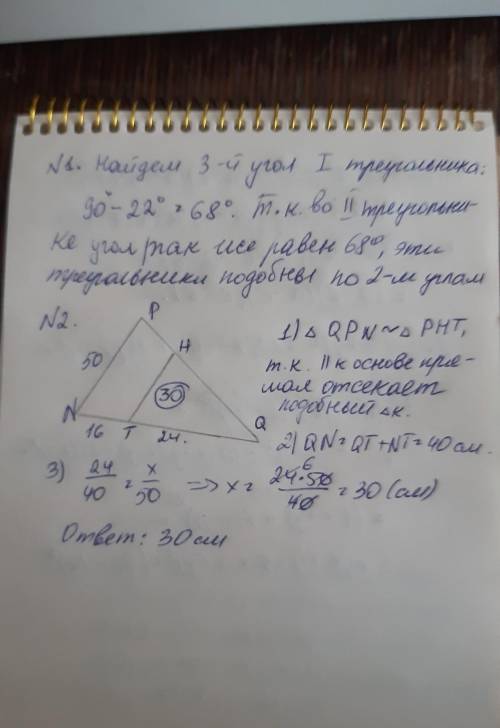 №1. Найдем 3-й угол I треугольника:
90° - 22° = 68°. Т.к. во II треугольни-
ке угол так же равен 68°, эти
треугольники подобны по 2-м углам
№2.
P
H
50
30
N
16
T
24.
Q
1) △ QPN ~ △ PHT,
т.к. || к основе пря-
мая отсекает
подобный △к.
2) QN = QT + NT = 40 см.
3) 24/40 = x/50 => x = 24·50/40 = 30 (см)
6
Ответ: 30 см